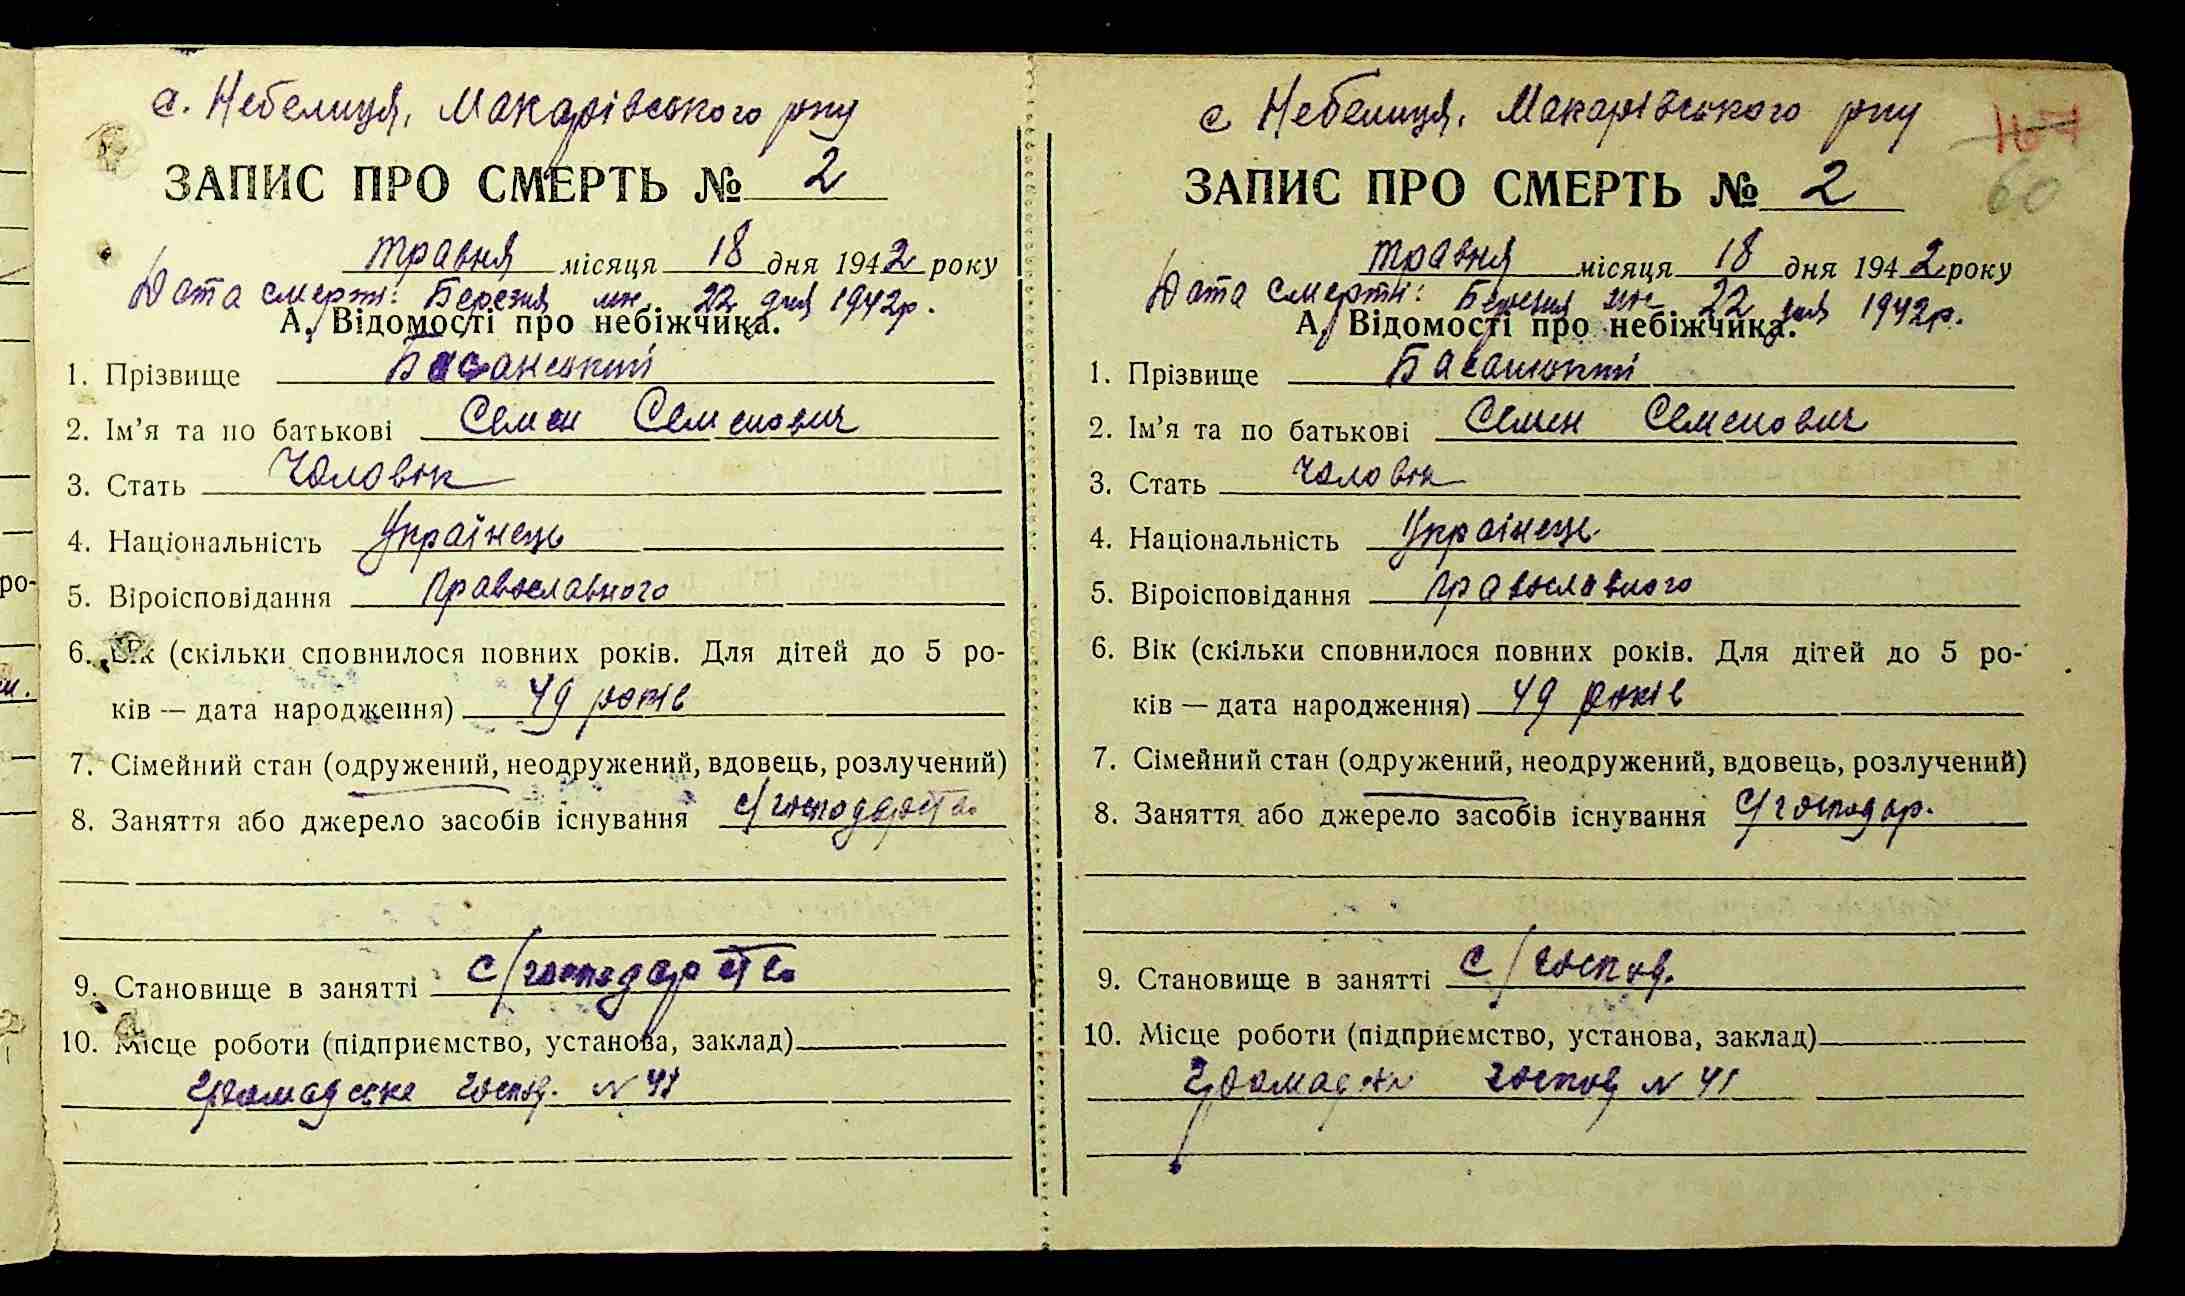 с. Небелиця, Макарівського р-ну
ЗАПИС ПРО СМЕРТЬ № 2
травня місяця 18 дня 1942 року
Дата смерті: Березня м. 22 дня 1942р.
А. Відомості про небіжчика.
1. Прізвище Басанський
2. Ім'я та по батькові Семен Семенович
3. Стать Чоловік
4. Національність Українець
5. Віроісповідання Православного
6. Вік (скільки сповнилося повних років. Для дітей до 5 ро-
ків — дата народження) 49 років
7. Сімейний стан (одружений, неодружений, вдовець, розлучений)
8. Заняття або джерело засобів існування с/господарство
9. Становище в занятті с/господарство
10. Місце роботи (підприємство, установа, заклад)
громадське господ. N 41
с Небелиця, Макарівського р-ну
60
ЗАПИС ПРО СМЕРТЬ № 2
травня місяця 18 дня 1942 року
Дата смерті: Березня 22 дня 1942р.
А. Відомості про небіжчика.
1. Прізвище Басанський
2. Ім'я та по батькові Семен Семенович
3. Стать Чоловік
4. Національність Українець
5. Віроісповідання Православного
6. Вік (скільки сповнилося повних років. Для дітей до 5 ро-
ків — дата народження) 49 років
7. Сімейний стан (одружений, неодружений, вдовець, розлучений)
8. Заняття або джерело засобів існування с/господар.
9. Становище в занятті с/господ.
10. Місце роботи (підприємство, установа, заклад)
господ N 41
ро-